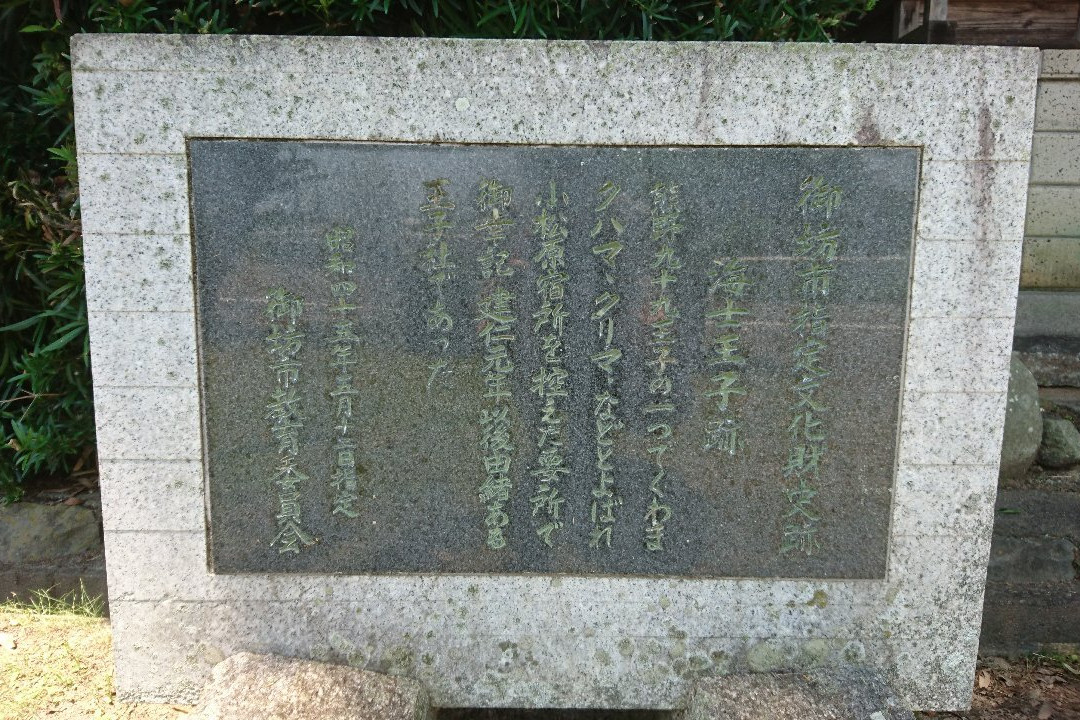 御坊市指定文化財史跡
海士王子跡
熊野九十九王子の一つでくわま
クハマ、クリマ、などとよばれ
小松原宿所を控えた要所で
御幸記 建仁元年以後由緒ある
王子社であった
昭和四十五年三月十一日指定
御坊市教育委員会